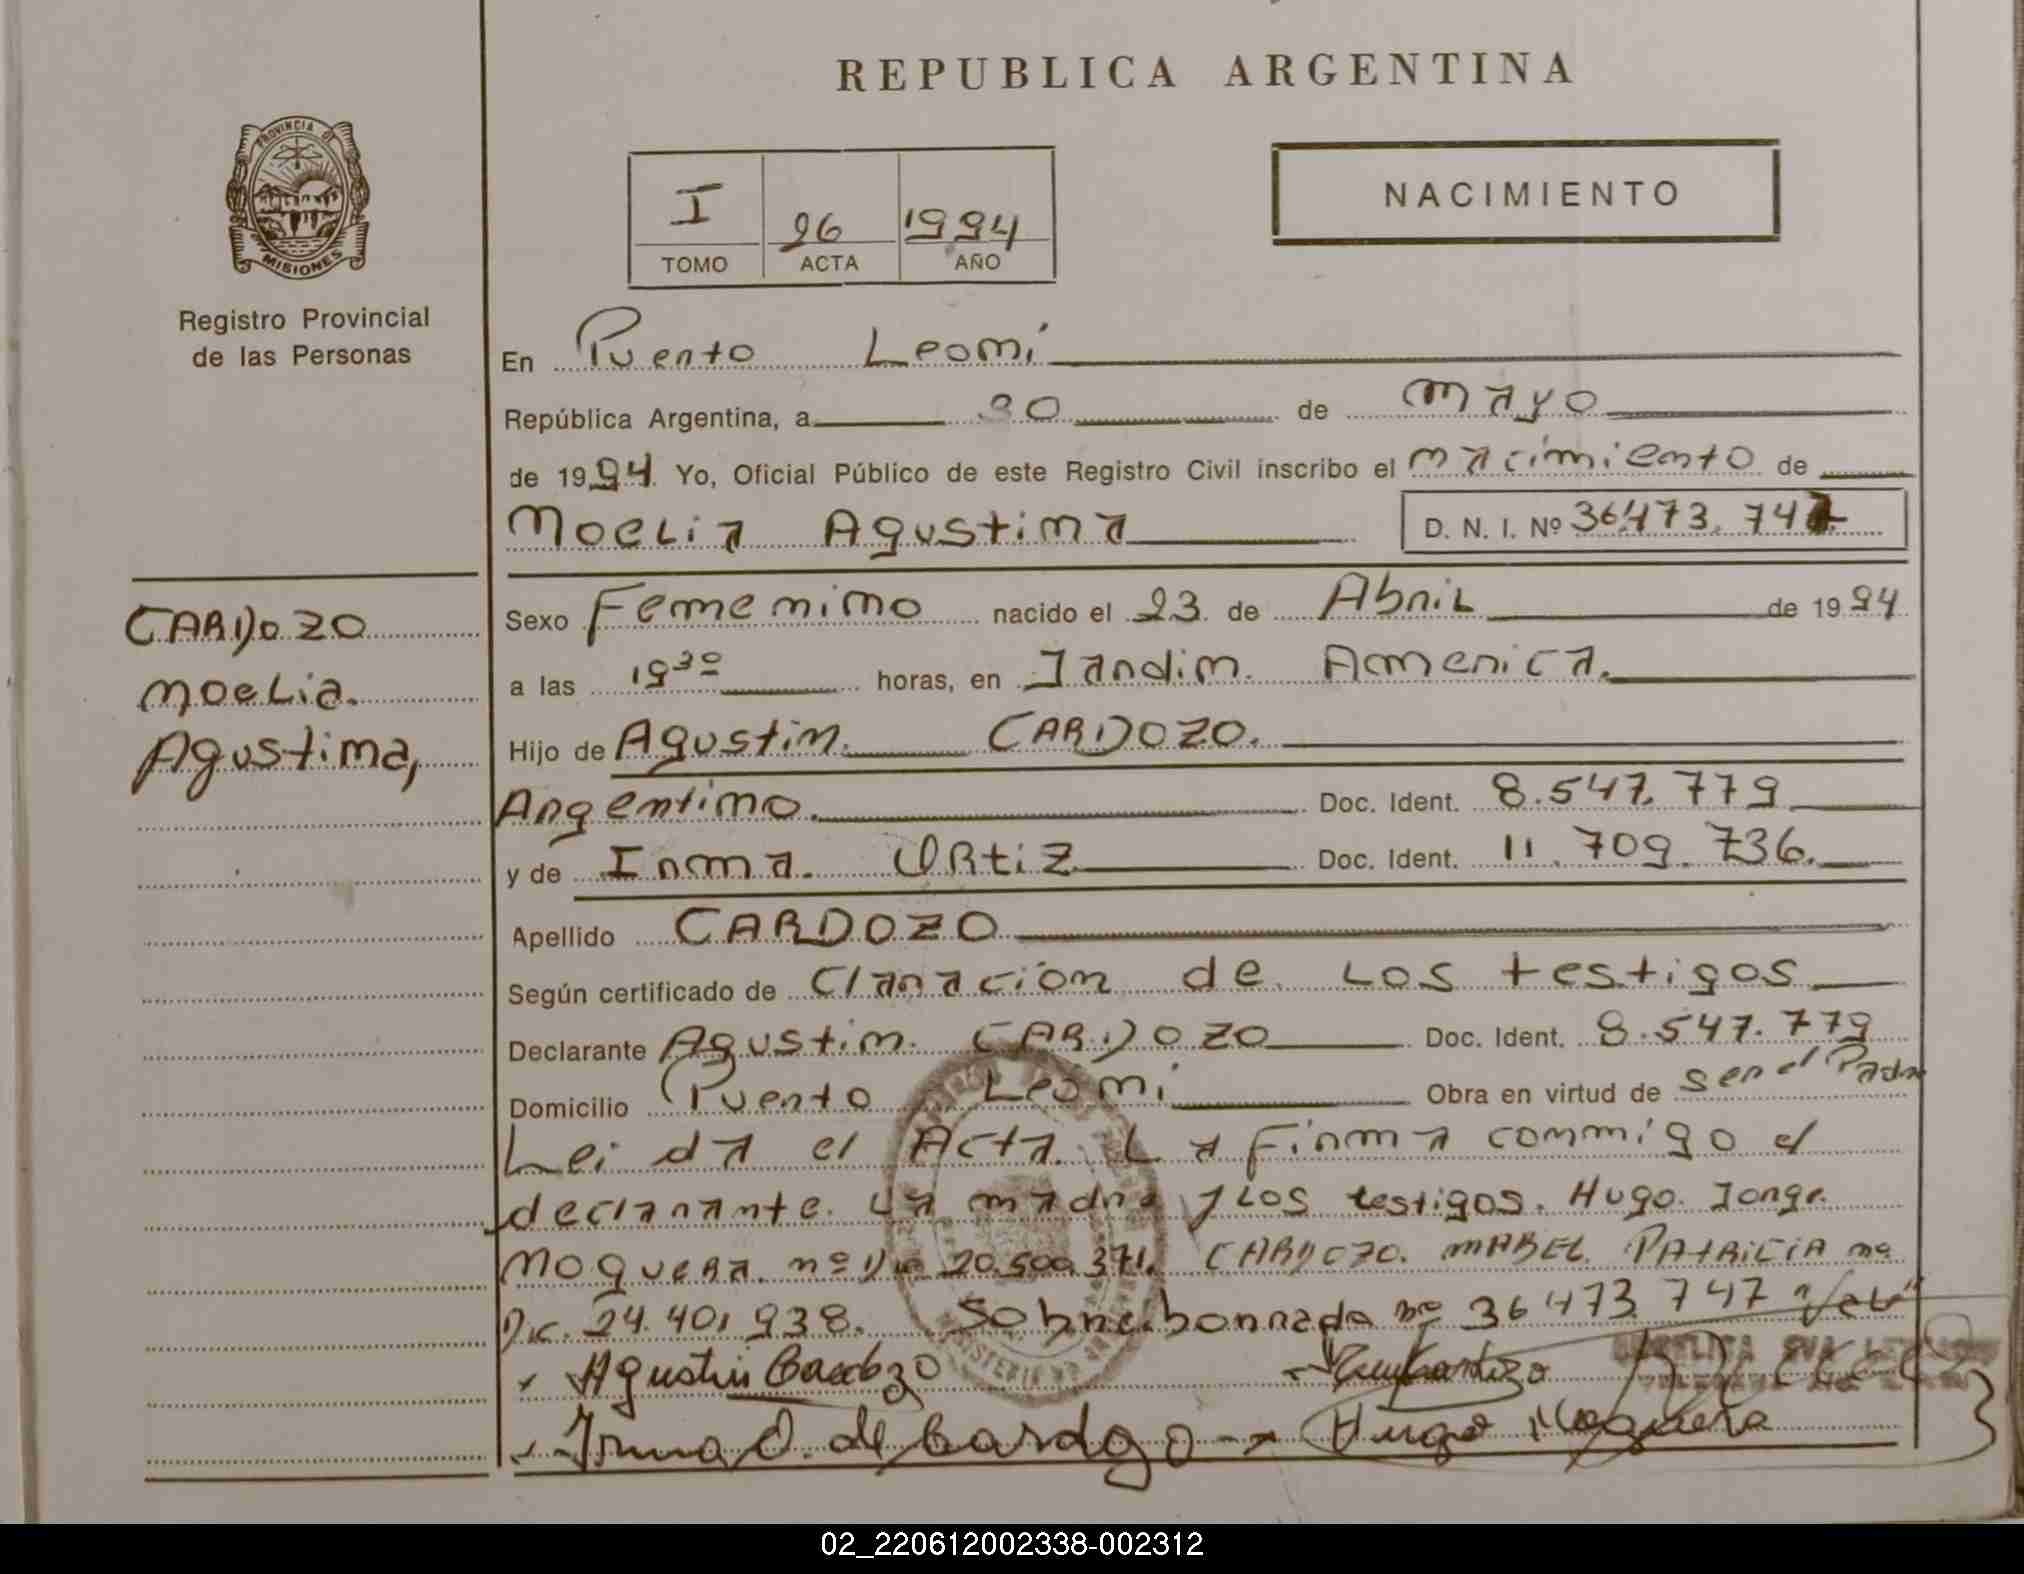 REPUBLICA ARGENTINA
PROVINCIA DE
MISIONES
Registro Provincial
de las Personas
NACIMIENTO
I 26 1994
TOMO ACTA AÑO
En Puerto Leoni
República Argentina, a 30 de mayo
de 1994 Yo, Oficial Público de este Registro Civil inscribo el nacimiento de
Noelia Agustina D. N. I. Nº 36.473.747
CARDOZO
Noelia.
Agustina,
Sexo Femenino nacido el 23 de Abril de 1994
a las 19³⁰ horas, en Jardin America.
Hijo de Agustin CARDOZO.
Argentino. Doc. Ident. 8.547.779
y de Irma. Ortiz Doc. Ident. 11.709.736.
Apellido CARDOZO
Según certificado de Claración de los testigos
Declarante Agustin. CARDOZO Doc. Ident. 8.547.779
Domicilio Puerto Leoni Obra en virtud de ser el Padre
Lei da el Acta La firma conmigo el
declarante. La madre y Los testigos. Hugo Jorge.
Noguera. nº 20.500.371. CARDOZO. MABEL PATRICIA nº
24.401.938. Sobreborrado nº 36473747
Agustin Cardozo
Irma O. de Cardozo Hugo Noguera
02_220612002338-002312